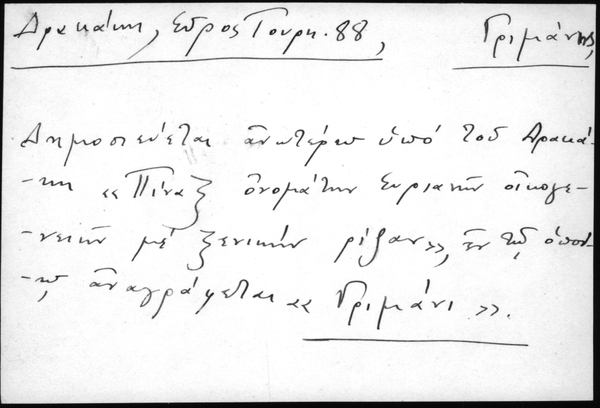 Δρακάκη, Σῦρος Τουρκ. 88, Γριμάνης,
Δημοσιεύεται ἀνωτέρω ὑπό τοῦ Δρακά-
-κη «Πίναξ ὀνομάτων Συριανῶν οἰκογε-
-νειῶν μέ ξενικήν ρίζαν», ἐν τῷ ὁποί-
-ῳ ἀναγράφεται « Γριμάνι ».